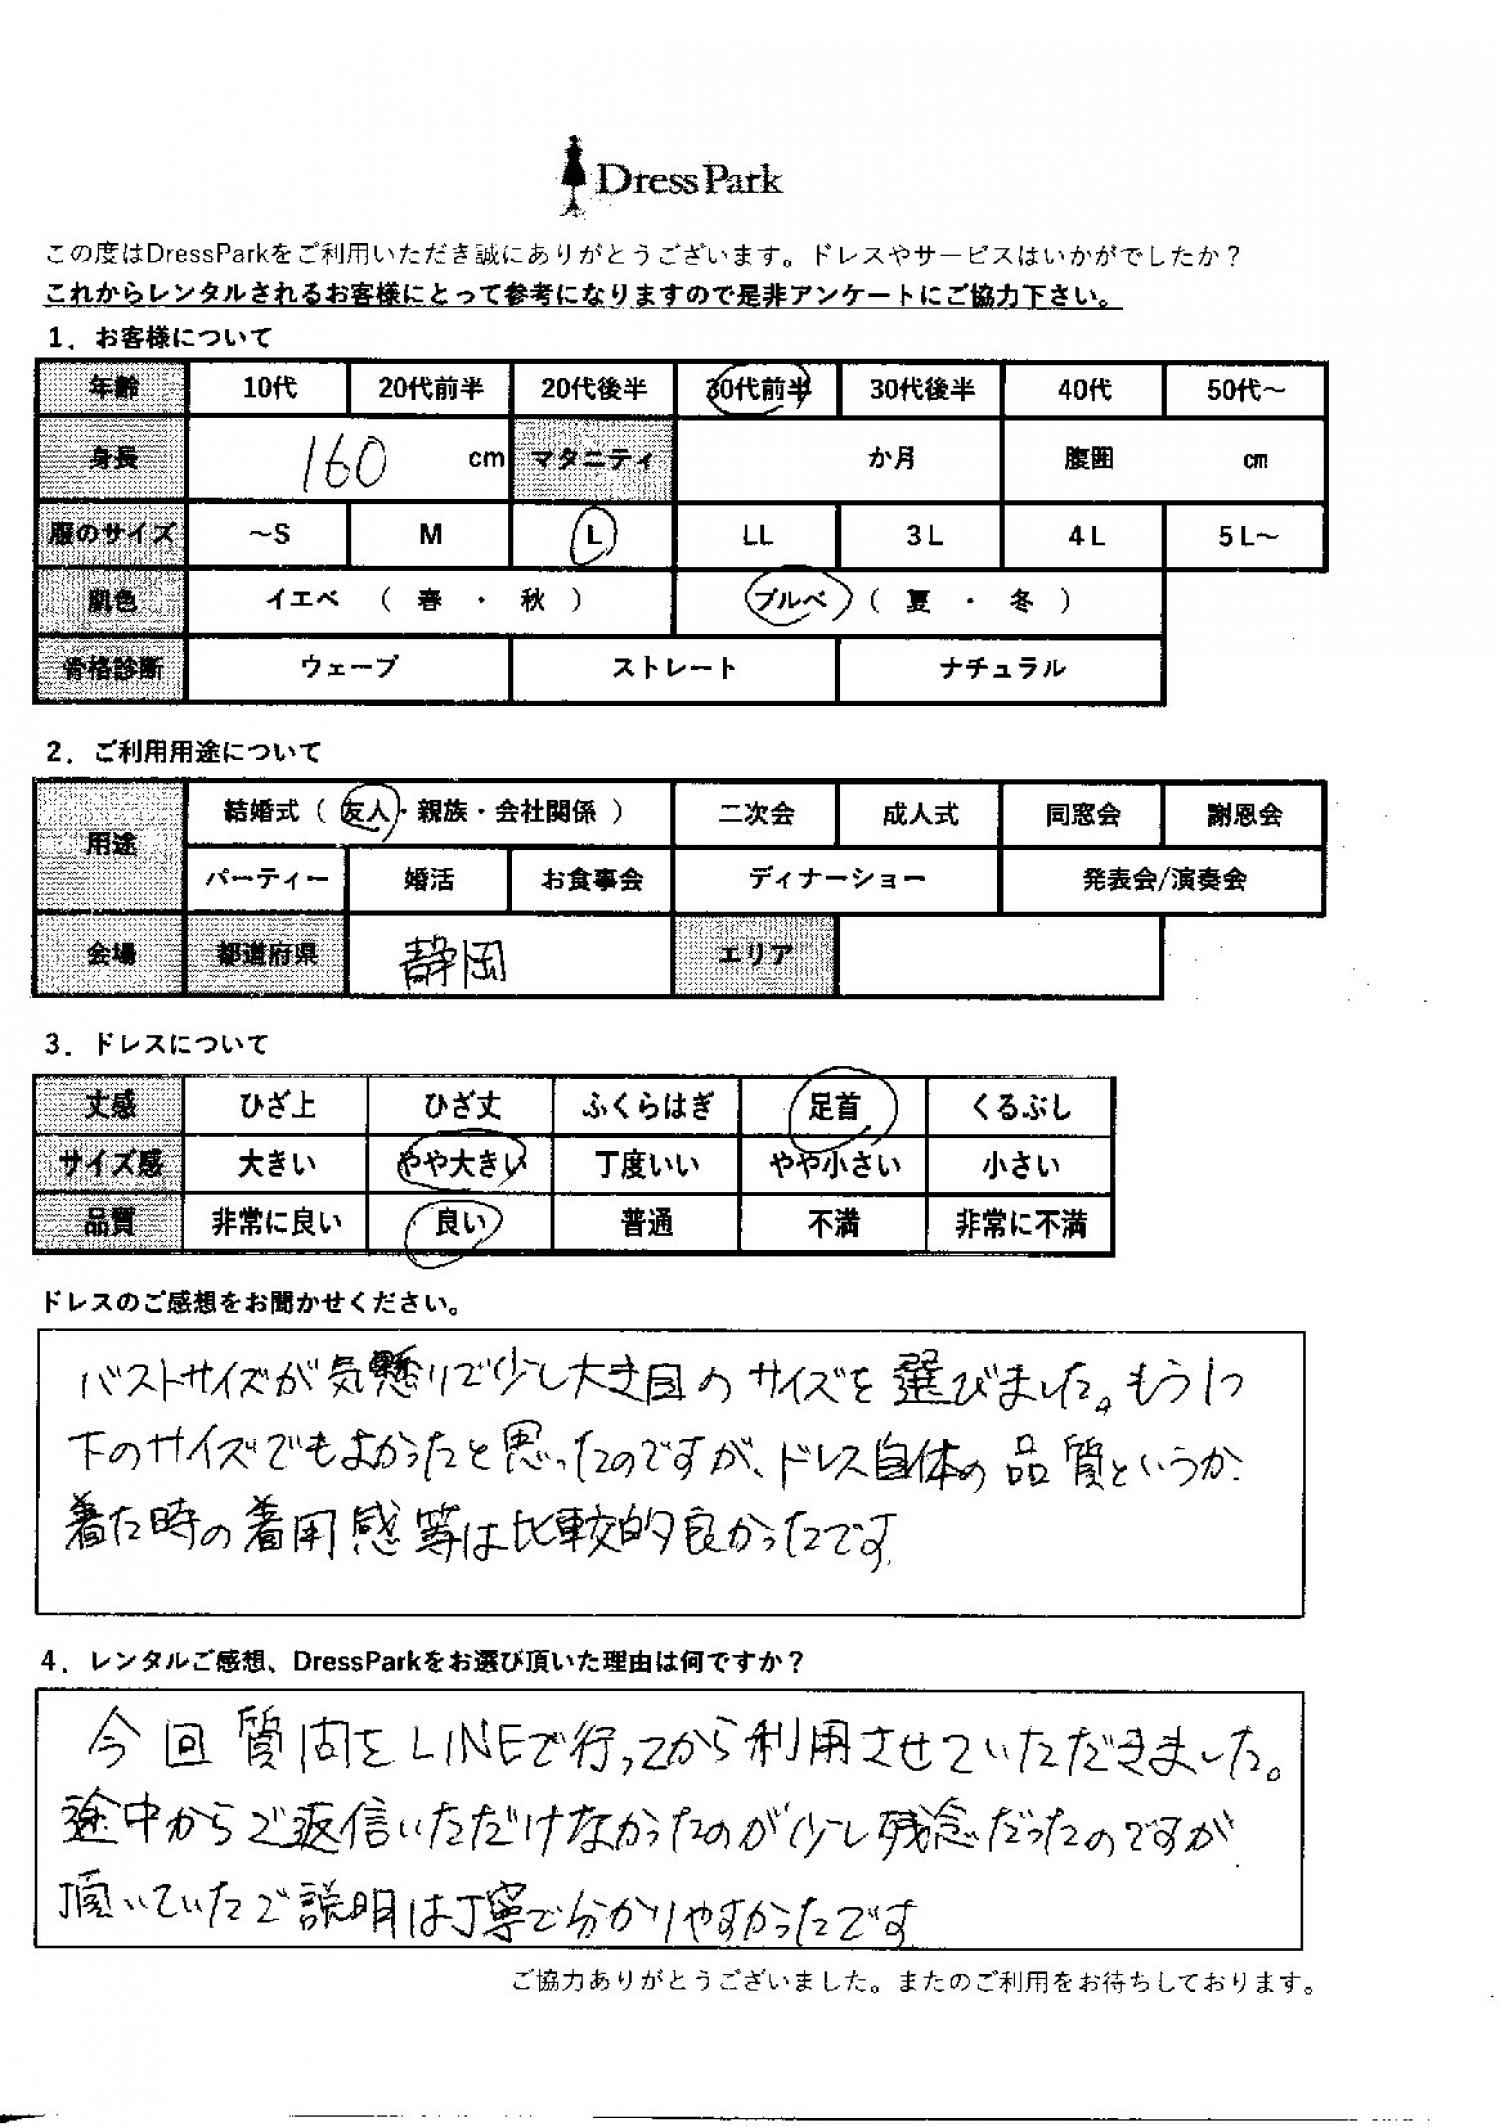 DressPark
この度はDressParkをご利用いただき誠にありがとうございます。ドレスやサービスはいかがでしたか?
これからレンタルされるお客様にとって参考になりますので是非アンケートにご協力下さい。
1．お客様について
年齢 10代 20代前半 20代後半 30代前半 30代後半 40代 50代～
身長 160 cm マタニティ か月 腹囲 cm
服のサイズ ～S M L LL 3L 4L 5L～
肌色 イエベ （ 春 ・ 秋 ） ブルベ （ 夏 ・ 冬 ）
骨格診断 ウェーブ ストレート ナチュラル
2．ご利用用途について
用途 結婚式（ 友人・親族・会社関係 ） 二次会 成人式 同窓会 謝恩会
パーティー 婚活 お食事会 ディナーショー 発表会/演奏会
会場 都道府県 静岡 エリア
3．ドレスについて
丈感 ひざ上 ひざ丈 ふくらはぎ 足首 くるぶし
サイズ感 大きい やや大きい 丁度いい やや小さい 小さい
品質 非常に良い 良い 普通 不満 非常に不満
ドレスのご感想をお聞かせください。
バストサイズが気懸りで少し大き目のサイズを選びました。もう1つ
下のサイズでもよかったと思ったのですが、ドレス自体の品質というか、
着た時の着用感等は比較的良かったです
4．レンタルご感想、DressParkをお選び頂いた理由は何ですか？
今回質問をLINEで行ってから利用させていただきました。
途中からご返信いただけなかったのが少し残念だったのですが
頂いていたご説明は丁寧で分かりやすかったです
ご協力ありがとうございました。またのご利用をお待ちしております。